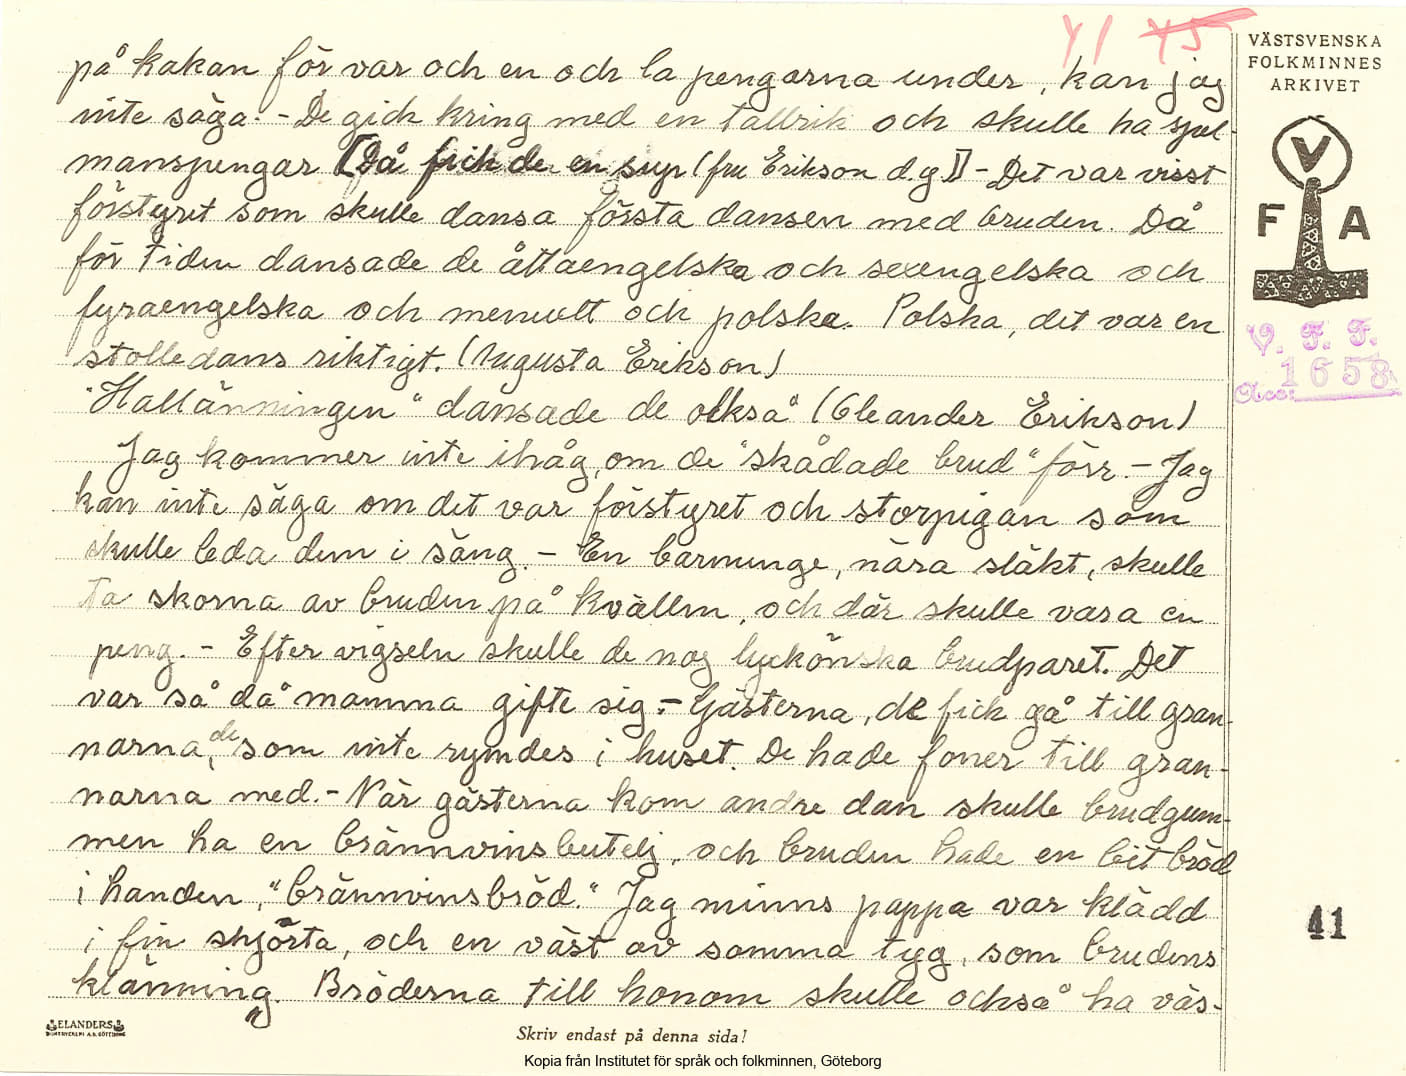 41 45
VÄSTSVENSKA
FOLKMINNES
ARKIVET
V
F A
V. F. F.
Acc: 1658
på kakan för var och en och la pengarna under, kan jag
inte säga. - De gick kring med en tallrik och skulle ha spel-
manspengar [Då fick de en sup (fru Erikson d.g.)] - Det var visst
förstyret som skulle dansa första dansen med bruden. Då
för tiden dansade de åttaengelska och sexengelska och
fyraengelska och menuett och polska. Polska, det var en
stolledans riktigt. (Augusta Erikson)
"Hallänningen" dansade de också" (Cleander Erikson)
Jag kommer inte ihåg, om de "skådade brud" förr. - Jag
kan inte säga om det var förstyret och storpigan som
skulle leda dem i säng. - En barnunge, nära släkt, skulle
ta skorna av bruden på kvällen, och där skulle vara en
peng. - Efter vigseln skulle de nog lyckönska brudparet. Det
var så då mamma gifte sig. - Gästerna, de fick gå till gran-
narna, de som inte rymdes i huset. De hade foner till gran-
narna med. - När gästerna kom andre dan skulle brudgum-
men ha en brännvinsbutelj, och bruden hade en bit bröd
i handen, "brännvinsbröd." Jag minns pappa var klädd
i fin skjorta, och en väst av samma tyg, som brudens
klänning. Bröderna till honom skulle också ha väs-
41
ELANDERS
BOKTRYCKERI A.B. GÖTEBORG
Skriv endast på denna sida!
Kopia från Institutet för språk och folkminnen, Göteborg